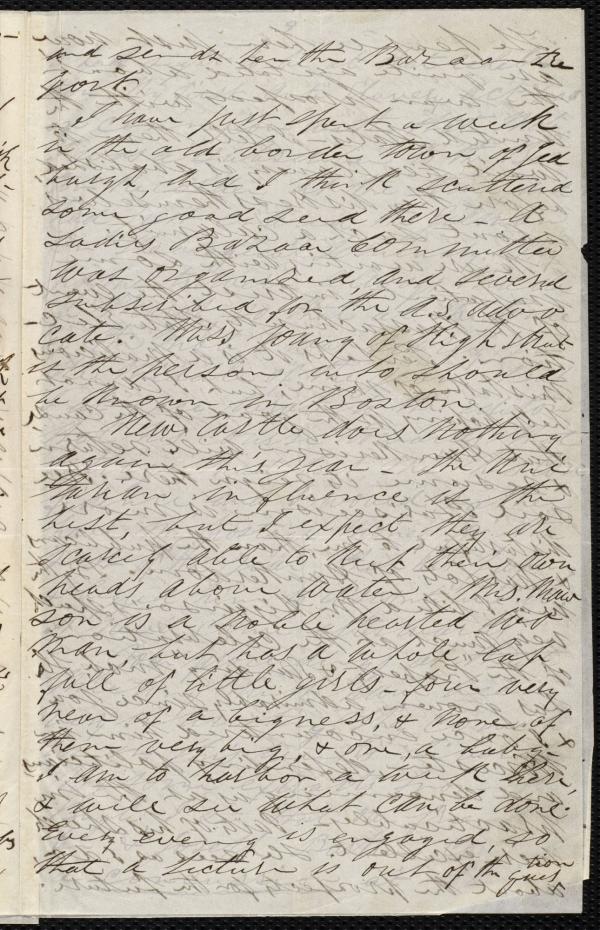 and sends her the Bazaar Re
port.
I have just spent a week
in the old border town of Jed
burgh, and I think scattered
some good seed there - A
Ladies Bazaar Committee
was organized, and several
subscribed for the A.S. Advo
cate. Miss Young of High street
is the person who should
be known in Boston.
New Castle does nothing
again this year - the Uni
tarian influence is the
best, but I expect they are
scarcely able to keep their own
heads above water. Mrs. Maw
son is a noble hearted wo
man, but has a whole lap
full of little girls - four very
near of a bigness, & none of
them very big, & one, a baby -
I am to harbor a week here,
& will see what can be done.
Every evening is engaged, so
that a lecture is out of the ques
tion